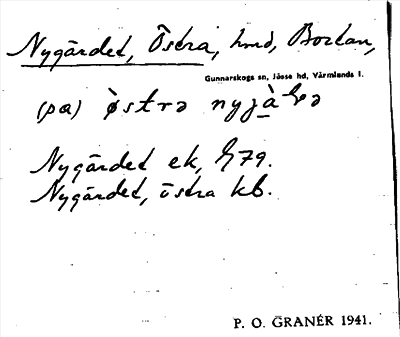 Nygärdet, Östra, hmd, Bortan,
Gunnarskogs sn, Jösse hd, Värmlands l.
(pa) östrə
Nygärdet ek, G79.
Nygärdet, östra kb.
P. O. GRANÉR 1941.